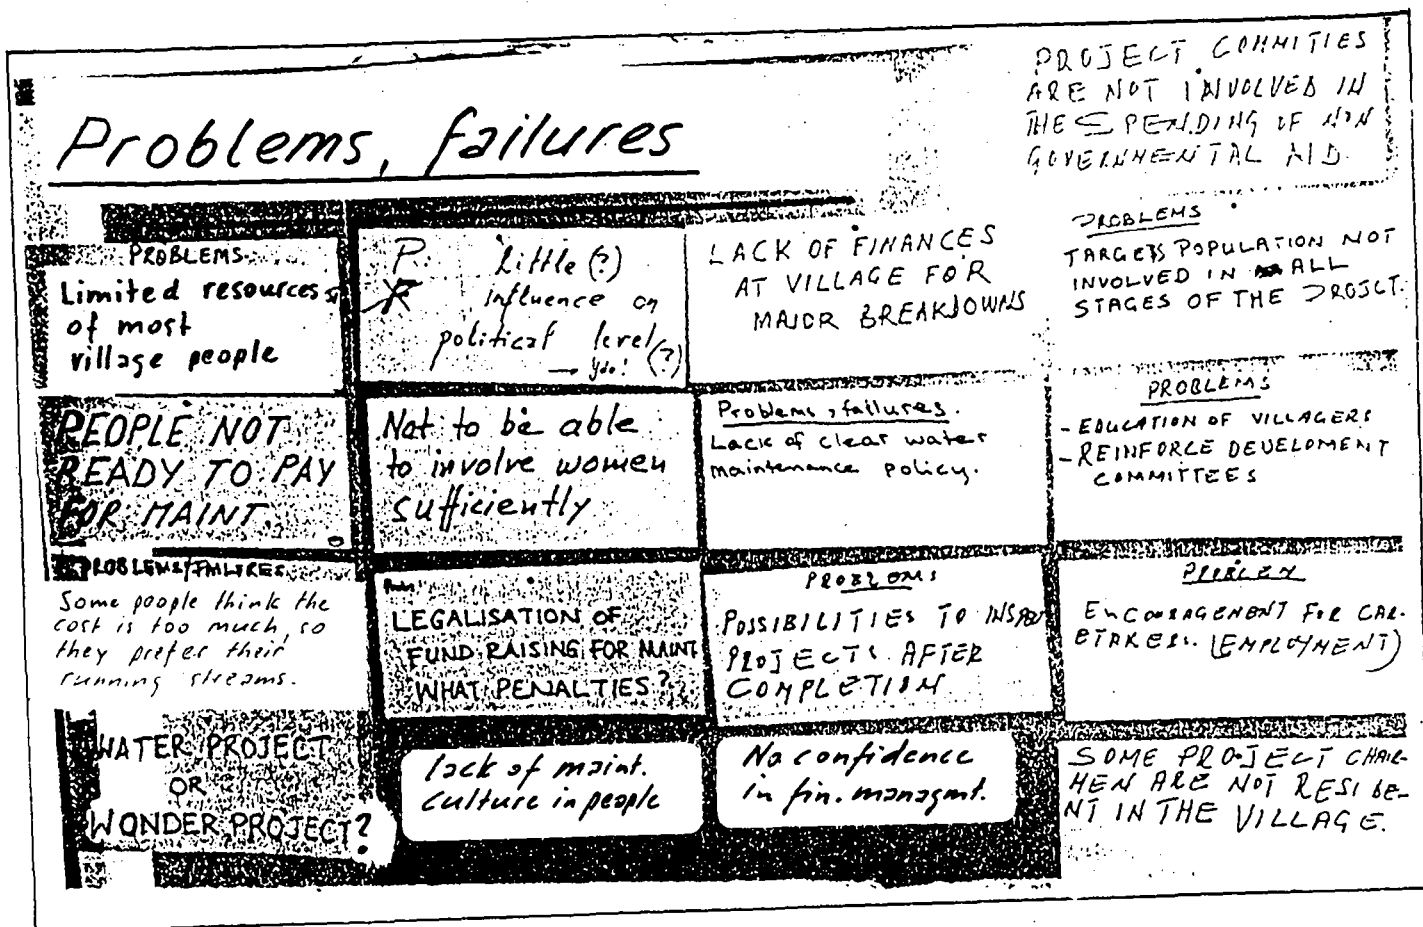 Problems, failures
PROJECT COMMITIES
ARE NOT INVOLVED IN
THE SPENDING OF NON
GOVERNMENTAL AID.
PROBLEMS
Limited resources
of most
village people
P
Little (?)
influence on
political level (?)
LACK OF FINANCES
AT VILLAGE FOR
MAJOR BREAKDOWNS
PROBLEMS
TARGETS POPULATION NOT
INVOLVED IN ALL
STAGES OF THE PROJCT.
PEOPLE NOT
READY TO PAY
FOR MAINT.
Not to be able
to involve women
sufficiently
Problems, failures.
Lack of clear water
maintenance policy.
PROBLEMS
- EDUCATION OF VILLAGERS
- REINFORCE DEVELOMENT
COMMITTEES
PROBLEMS/FAILURES
Some people think the
cost is too much, so
they prefer their
running streams.
LEGALISATION OF
FUND RAISING FOR MAINT
WHAT PENALTIES?
PROBLEMS
POSSIBILITIES TO INSPECT
PROJECTS AFTER
COMPLETION
PROBLEM
ENCOURAGEMENT FOR CAR-
ETAKERS. (EMPLOYMENT)
WATER PROJECT
OR
WONDER PROJECT?
lack of maint.
culture in people
No confidence
in fin. managmt.
SOME PROJECT CHAIR-
MEN ARE NOT RESIDE-
NT IN THE VILLAGE.